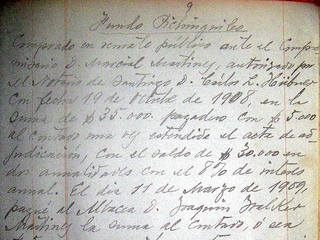 9
Fundo Pichinguileo
Comprado en remate publico ante el Compro-
misario D. Marcial Martinez, autorizado por
el Notario de Santiago D. Carlos L. Hübner
con fecha 19 de Octubre de 1908, en la
suma de $35.000. pagadero con $5000
al contado una vez estendida el acta de ad-
judicación, con el saldo de $30.000 en
dos anualidades con el 8% de interés
anual. El dia 11 de Marzo de 1909,
pagué al Albacea D. Joaquin Walker
Martinez la suma al Contado, ó sea